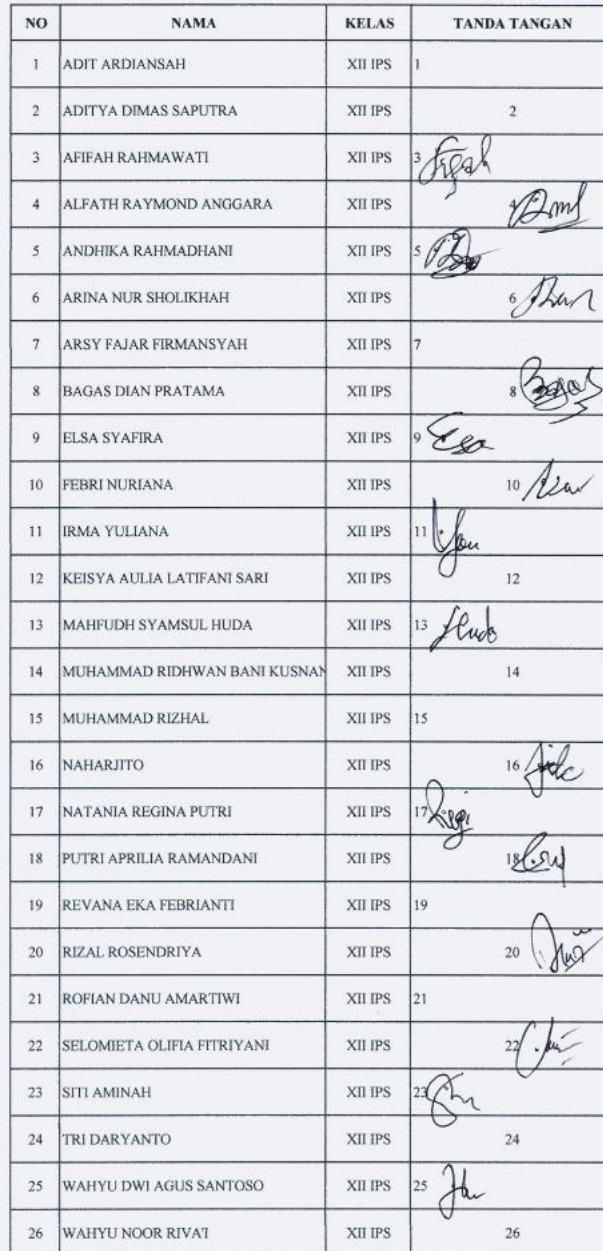 NO NAMA KELAS TANDA TANGAN
1 ADIT ARDIANSAH XII IPS 1
2 ADITYA DIMAS SAPUTRA XII IPS 2
3 AFIFAH RAHMAWATI XII IPS 3
4 ALFATH RAYMOND ANGGARA XII IPS 4
5 ANDHIKA RAHMADHANI XII IPS 5
6 ARINA NUR SHOLIKHAH XII IPS 6
7 ARSY FAJAR FIRMANSYAH XII IPS 7
8 BAGAS DIAN PRATAMA XII IPS 8 Bagas
9 ELSA SYAFIRA XII IPS 9
10 FEBRI NURIANA XII IPS 10
11 IRMA YULIANA XII IPS 11
12 KEISYA AULIA LATIFANI SARI XII IPS 12
13 MAHFUDH SYAMSUL HUDA XII IPS 13 Huda
14 MUHAMMAD RIDHWAN BANI KUSNAN XII IPS 14
15 MUHAMMAD RIZHAL XII IPS 15
16 NAHARJITO XII IPS 16
17 NATANIA REGINA PUTRI XII IPS 17
18 PUTRI APRILIA RAMANDANI XII IPS 18
19 REVANA EKA FEBRIANTI XII IPS 19
20 RIZAL ROSENDRIYA XII IPS 20
21 ROFIAN DANU AMARTIWI XII IPS 21
22 SELOMIETA OLIFIA FITRIYANI XII IPS 22
23 SITI AMINAH XII IPS 23
24 TRI DARYANTO XII IPS 24
25 WAHYU DWI AGUS SANTOSO XII IPS 25
26 WAHYU NOOR RIVAI XII IPS 26